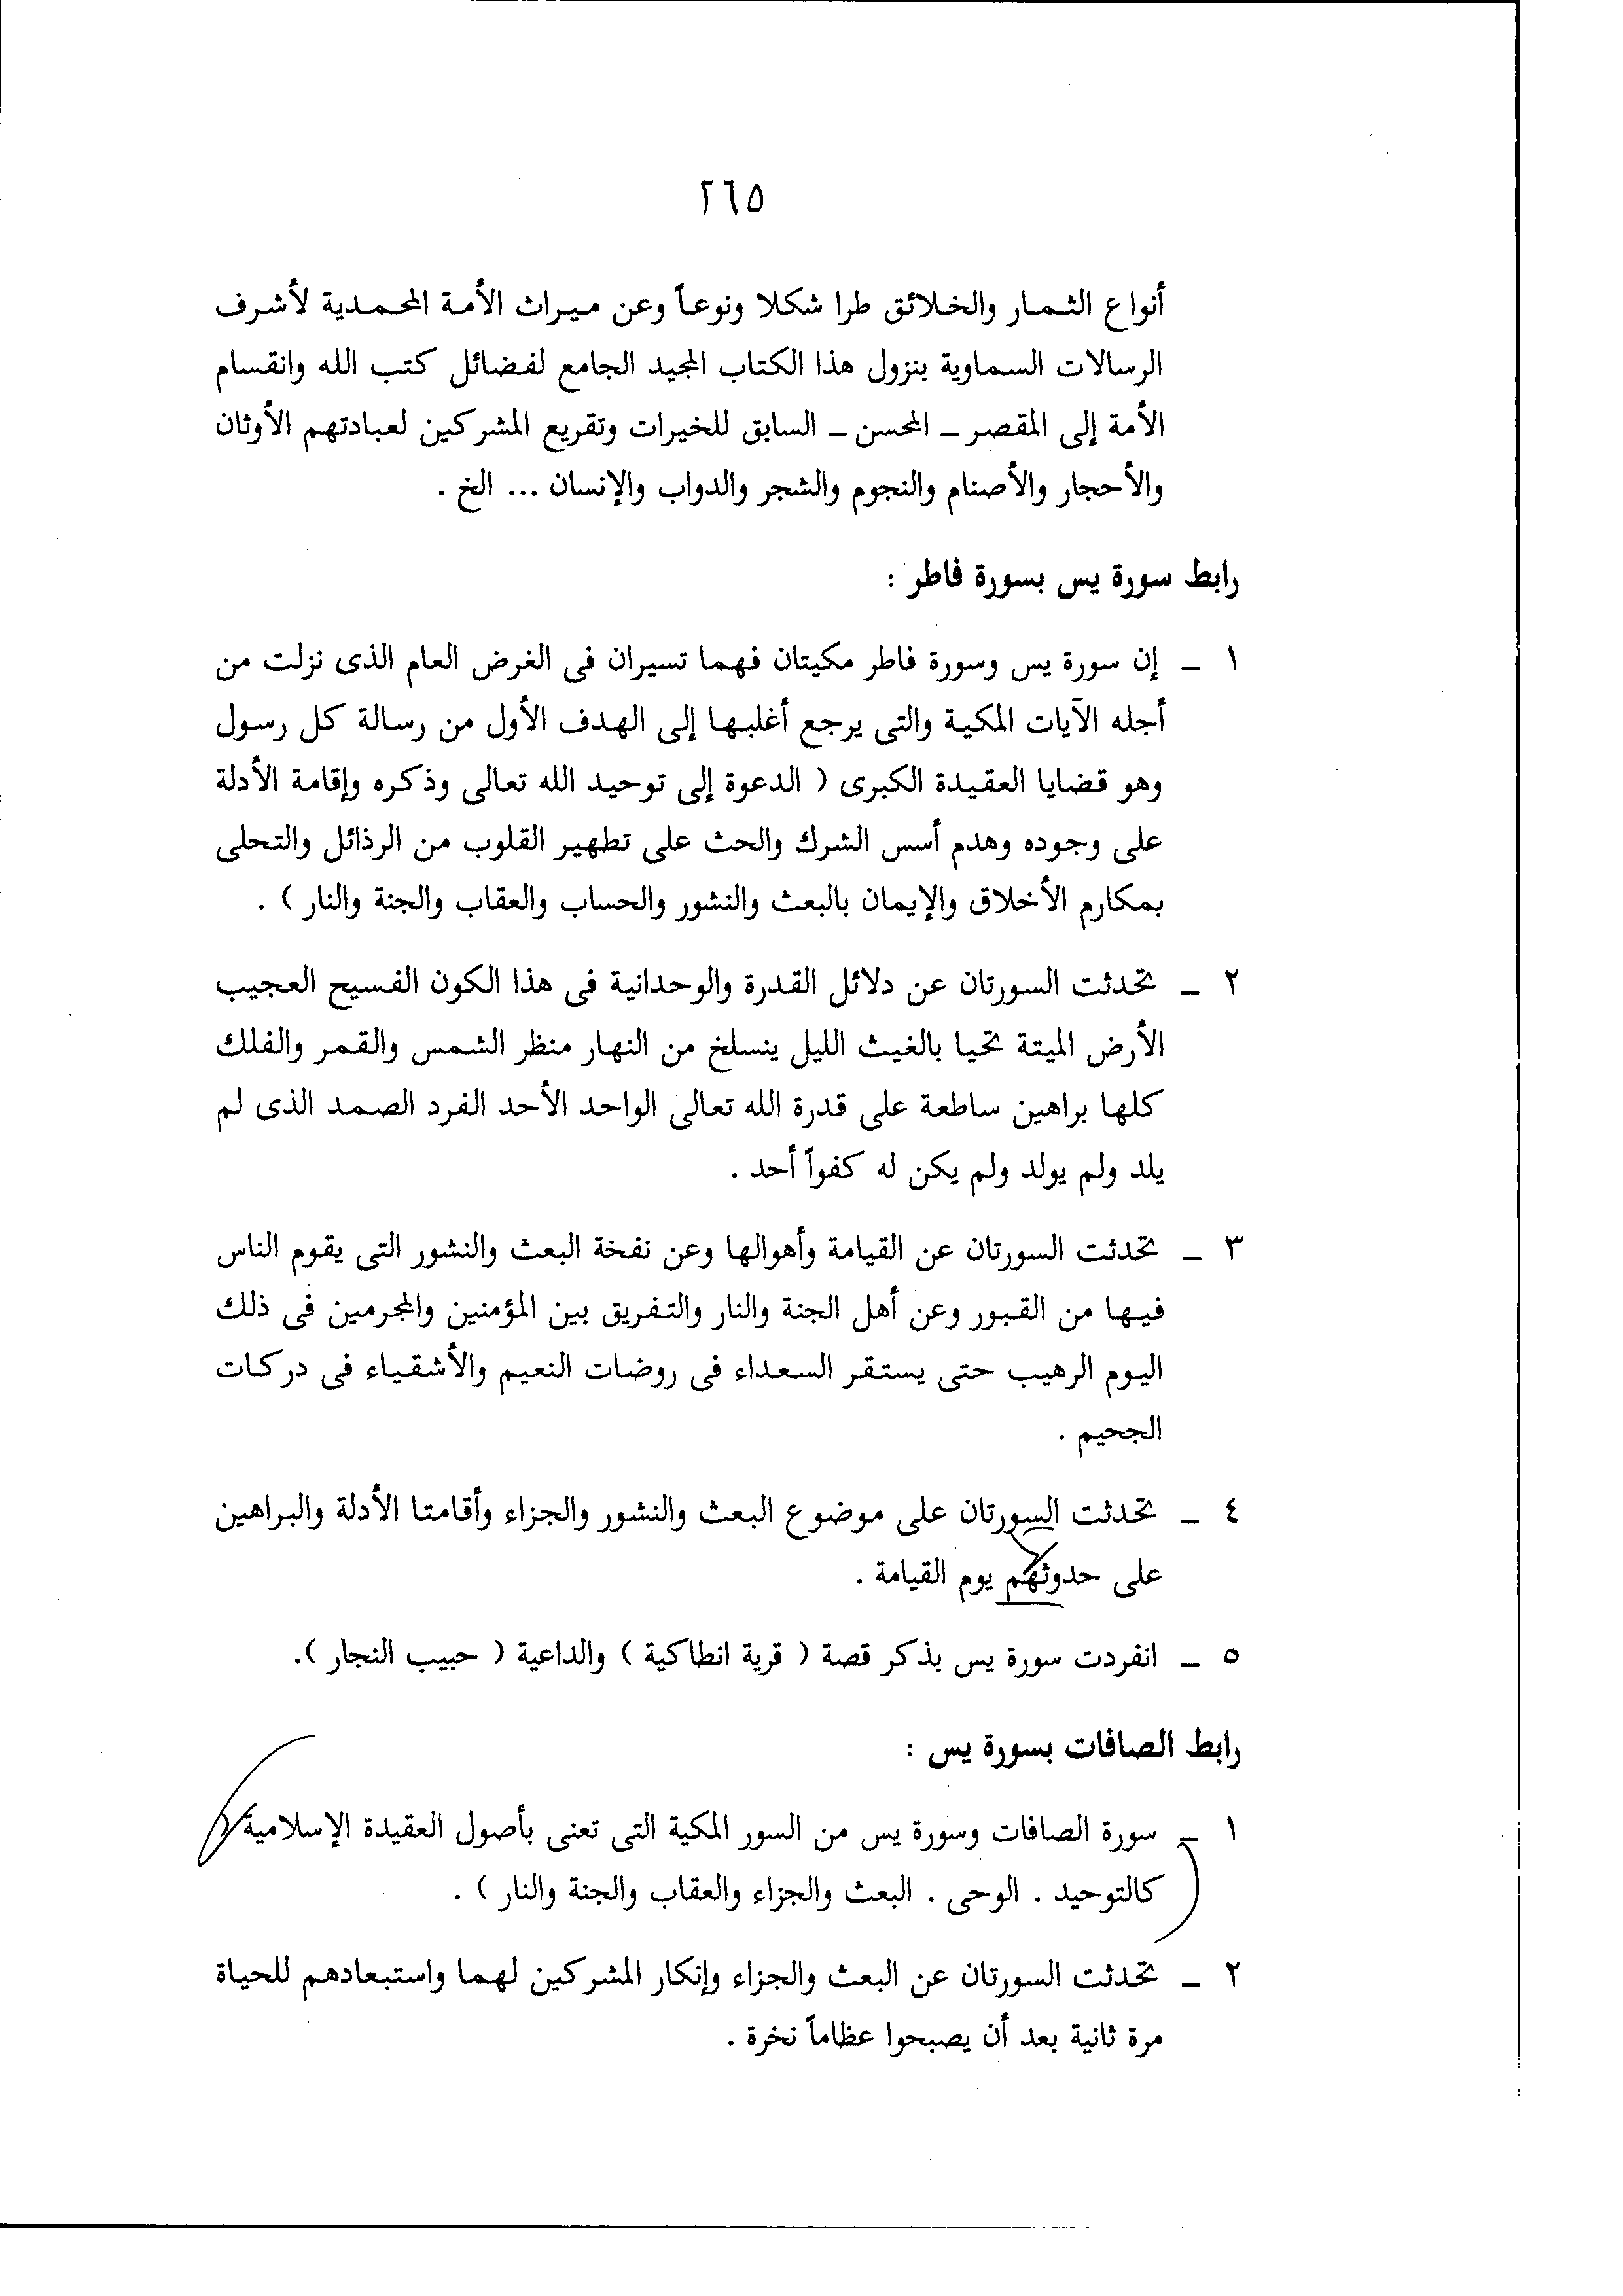 ٢٦٥
أنواع الثمار والخلائق طرا شكلا ونوعاً وعن ميراث الأمة المحمدية لأشرف
الرسالات السماوية بنزول هذا الكتاب المجيد الجامع لفضائل كتب الله وانقسام
الأمة إلى المقصر ـ المحسن ـ السابق للخيرات وتقريع المشركين لعبادتهم الأوثان
والأحجار والأصنام والنجوم والشجر والدواب والإنسان ... الخ .
رابط سورة يس بسورة فاطر :
١ ـ إن سورة يس وسورة فاطر مكيتان فهما تسيران فى الغرض العام الذى نزلت من
أجله الآيات المكية والتى يرجع أغلبها إلى الهدف الأول من رسالة كل رسول
وهو قضايا العقيدة الكبرى ( الدعوة إلى توحيد الله تعالى وذكره وإقامة الأدلة
على وجوده وهدم أسس الشرك والحث على تطهير القلوب من الرذائل والتحلى
بمكارم الأخلاق والإيمان بالبعث والنشور والحساب والعقاب والجنة والنار ) .
٢ ـ تحدثت السورتان عن دلائل القدرة والوحدانية فى هذا الكون الفسيح العجيب
الأرض الميتة تحيا بالغيث الليل ينسلخ من النهار منظر الشمس والقمر والفلك
كلها براهين ساطعة على قدرة الله تعالى الواحد الأحد الفرد الصمد الذى لم
يلد ولم يولد ولم يكن له كفواً أحد .
٣ ـ تحدثت السورتان عن القيامة وأهوالها وعن نفخة البعث والنشور التى يقوم الناس
فيها من القبور وعن أهل الجنة والنار والتفريق بين المؤمنين والمجرمين فى ذلك
اليوم الرهيب حتى يستقر السعداء فى روضات النعيم والأشقياء فى دركات
الجحيم .
٤ ـ تحدثت السورتان على موضوع البعث والنشور والجزاء وأقامتا الأدلة والبراهين
على حدوثهم يوم القيامة .
٥ ـ انفردت سورة يس بذكر قصة ( قرية انطاكية ) والداعية ( حبيب النجار ).
رابط الصافات بسورة يس :
١ ـ سورة الصافات وسورة يس من السور المكية التى تعنى بأصول العقيدة الإسلامية (
كالتوحيد . الوحى . البعث والجزاء والعقاب والجنة والنار ) .
٢ ـ تحدثت السورتان عن البعث والجزاء وإنكار المشركين لهما واستبعادهم للحياة
مرة ثانية بعد أن يصبحوا عظاماً نخرة .